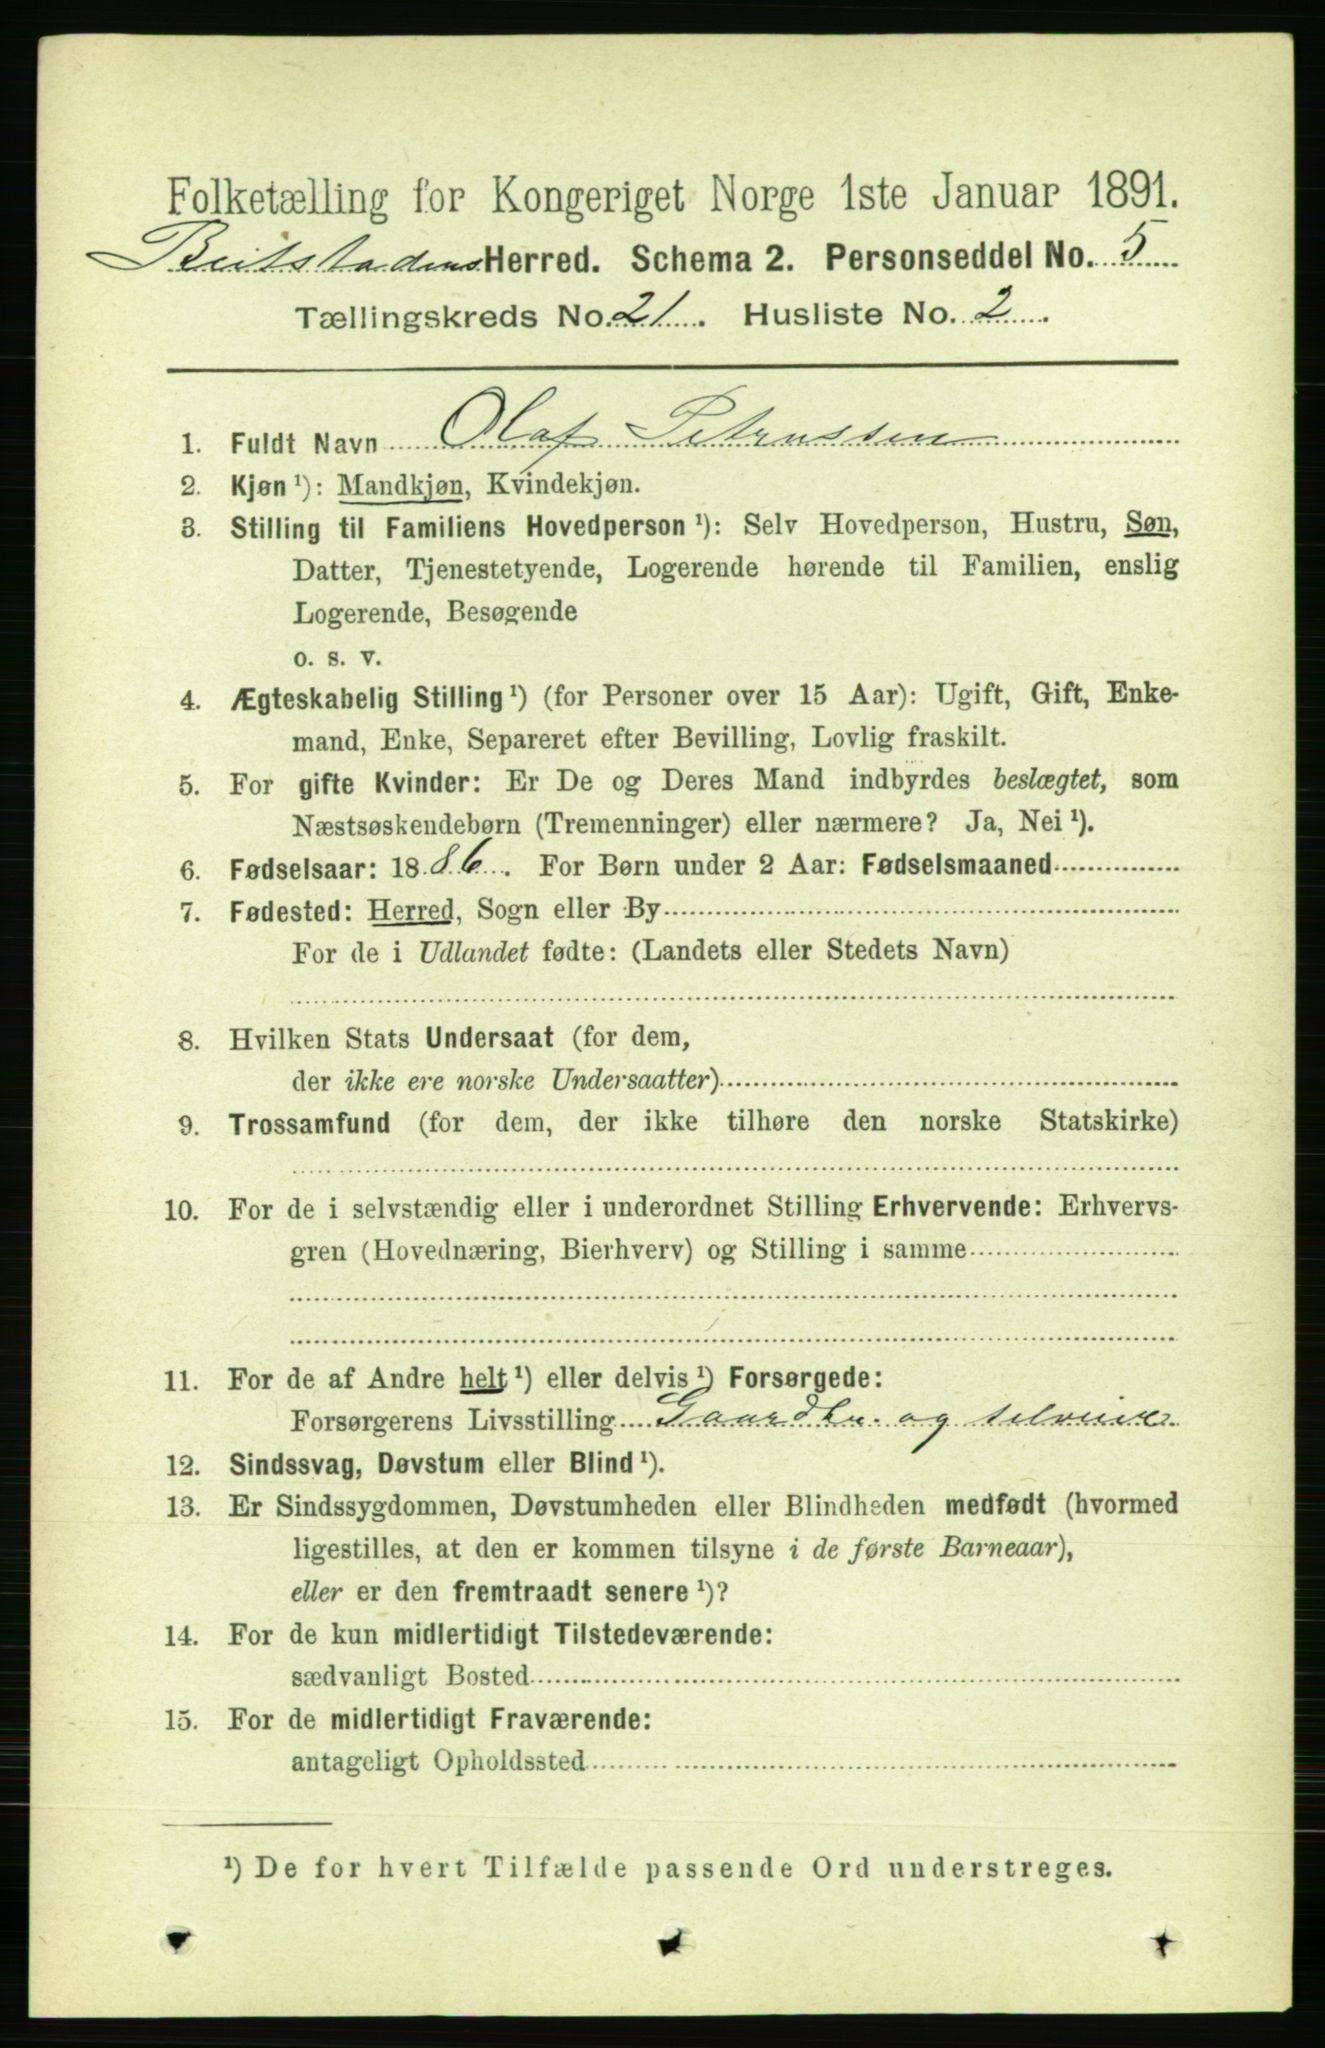 Folketælling for Kongeriget Norge 1ste Januar 1891.
Beitstadens Herred. Schema 2. Personseddel No. 5
Tællingskreds No. 21. Husliste No. 2.
1. Fuldt Navn Olaf Petrussen
2. Kjøn ¹): Mandkjøn, Kvindekjøn.
3. Stilling til Familiens Hovedperson ¹): Selv Hovedperson, Hustru, Søn,
Datter, Tjenestetyende, Logerende hørende til Familien, enslig
Logerende, Besøgende
o. s. v.
4. Ægteskabelig Stilling ¹) (for Personer over 15 Aar): Ugift, Gift, Enke-
mand, Enke, Separeret efter Bevilling, Lovlig fraskilt.
5. For gifte Kvinder: Er De og Deres Mand indbyrdes beslægtet, som
Næstsøskendebørn (Tremenninger) eller nærmere? Ja, Nei ¹).
6. Fødselsaar: 1886. For Børn under 2 Aar: Fødselsmaaned
7. Fødested: Herred, Sogn eller By
For de i Udlandet fødte: (Landets eller Stedets Navn)
8. Hvilken Stats Undersaat (for dem,
der ikke ere norske Undersaatter)
9. Trossamfund (for dem, der ikke tilhøre den norske Statskirke)
10. For de i selvstændig eller i underordnet Stilling Erhvervende: Erhvervs-
gren (Hovednæring, Bierhverv) og Stilling i samme
11. For de af Andre helt ¹) eller delvis ¹) Forsørgede:
Forsørgerens Livsstilling Gaardbr. og selveier
12. Sindssvag, Døvstum eller Blind ¹).
13. Er Sindssygdommen, Døvstumheden eller Blindheden medfødt (hvormed
ligestilles, at den er kommen tilsyne i de første Barneaar),
eller er den fremtraadt senere ¹)?
14. For de kun midlertidigt Tilstedeværende:
sædvanligt Bosted
15. For de midlertidigt Fraværende:
antageligt Opholdssted
¹) De for hvert Tilfælde passende Ord understreges.